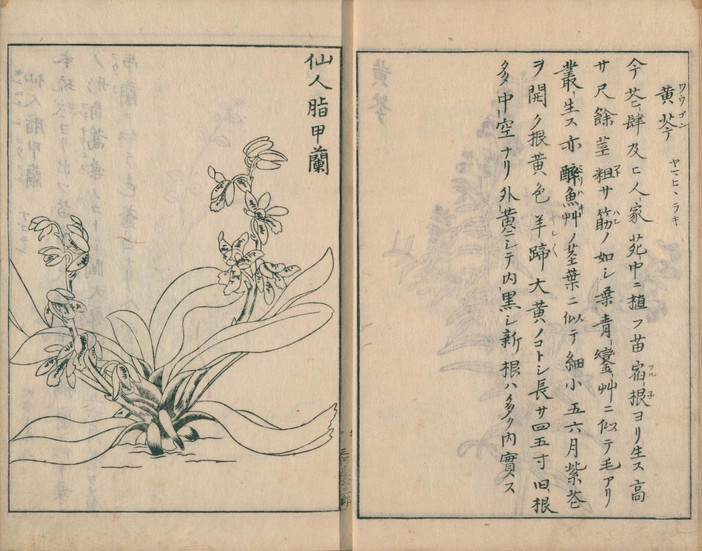 黄芩 ワウゴン ヤマヒヽラキ
今花肆及ヒ人家苑中ニ植フ苗宿根ヨリ生ス高
サ尺餘茎粗サ筯ノ如シ葉青蠻艸ニ似テ毛アリ
叢生ス亦醉魚艸ノ茎葉ニ似テ細小五六月紫花
ヲ開ク根黄色羊蹄大黄ノコトシ長サ四五寸旧根
多ク中空ナリ外黄ニシテ内黒シ新根ハ多ク内實ス
仙人脂甲蘭